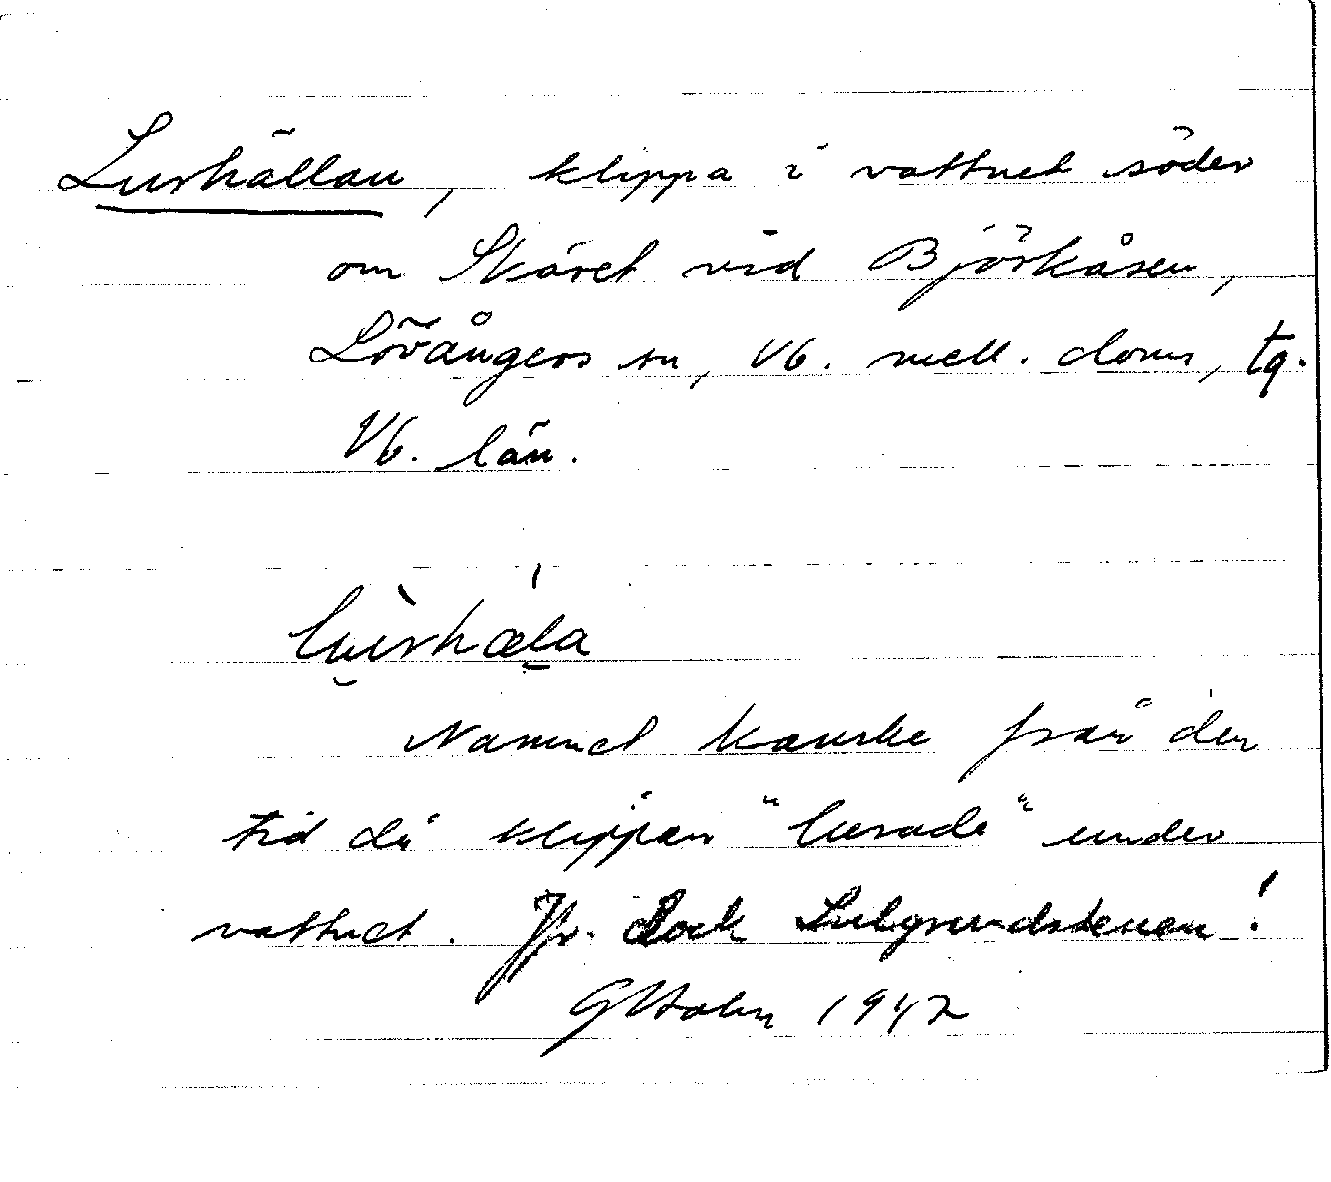 Lurhällan, klippa i vattnet söder
om Skäret vid Björkåsen,
Lövångers sn, Vb. mell. doms, tg.
Vb. län.
Namnet kanske från den
tid då klippan "lurade" under
vattnet. Jfr. dock Lulgrundstenen!
GHolm 1942